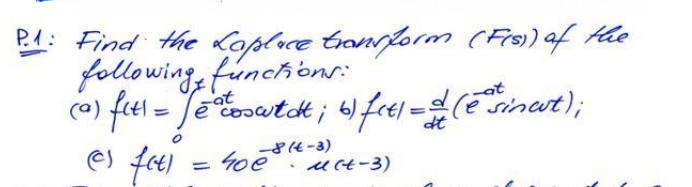 P.1: Find the Laplace transform (F(s)) of the
following functions:
(a) f(t) = ∫₀ᵗ e^{-at} cos ωt dt ; b) f(t) = d/dt (e^{-at} sin ωt);
(c) f(t) = 40e^{-8(t-3)} · u(t-3)